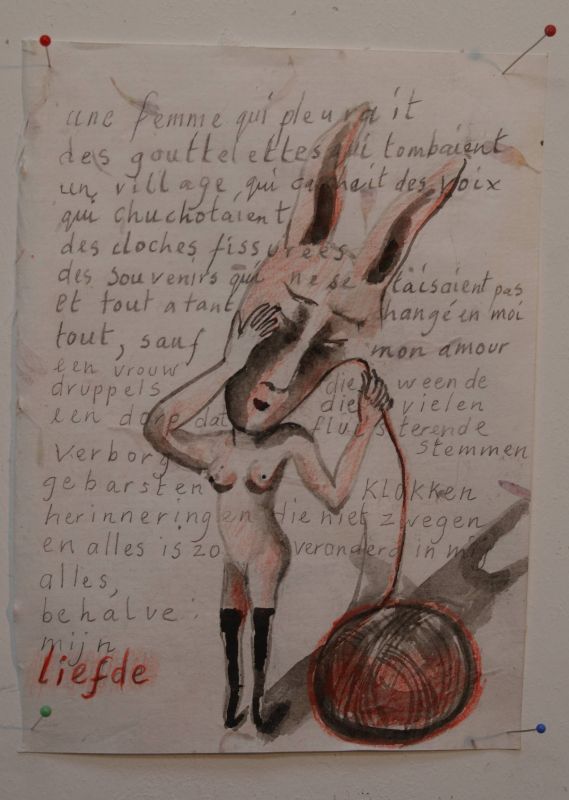 une femme qui pleurait
des gouttelettes qui tombaient
un village qui cachait des voix
qui chuchotaient
des cloches fissurées
des souvenirs qui ne se taisaient pas
et tout a tant changé en moi
tout, sauf mon amour
een vrouw die weende
druppels die vielen
een dorp dat fluisterende
verborg stemmen
gebarsten klokken
herinneringen die niet zwegen
en alles is zo veranderd in mij
alles,
behalve
mijn
liefde